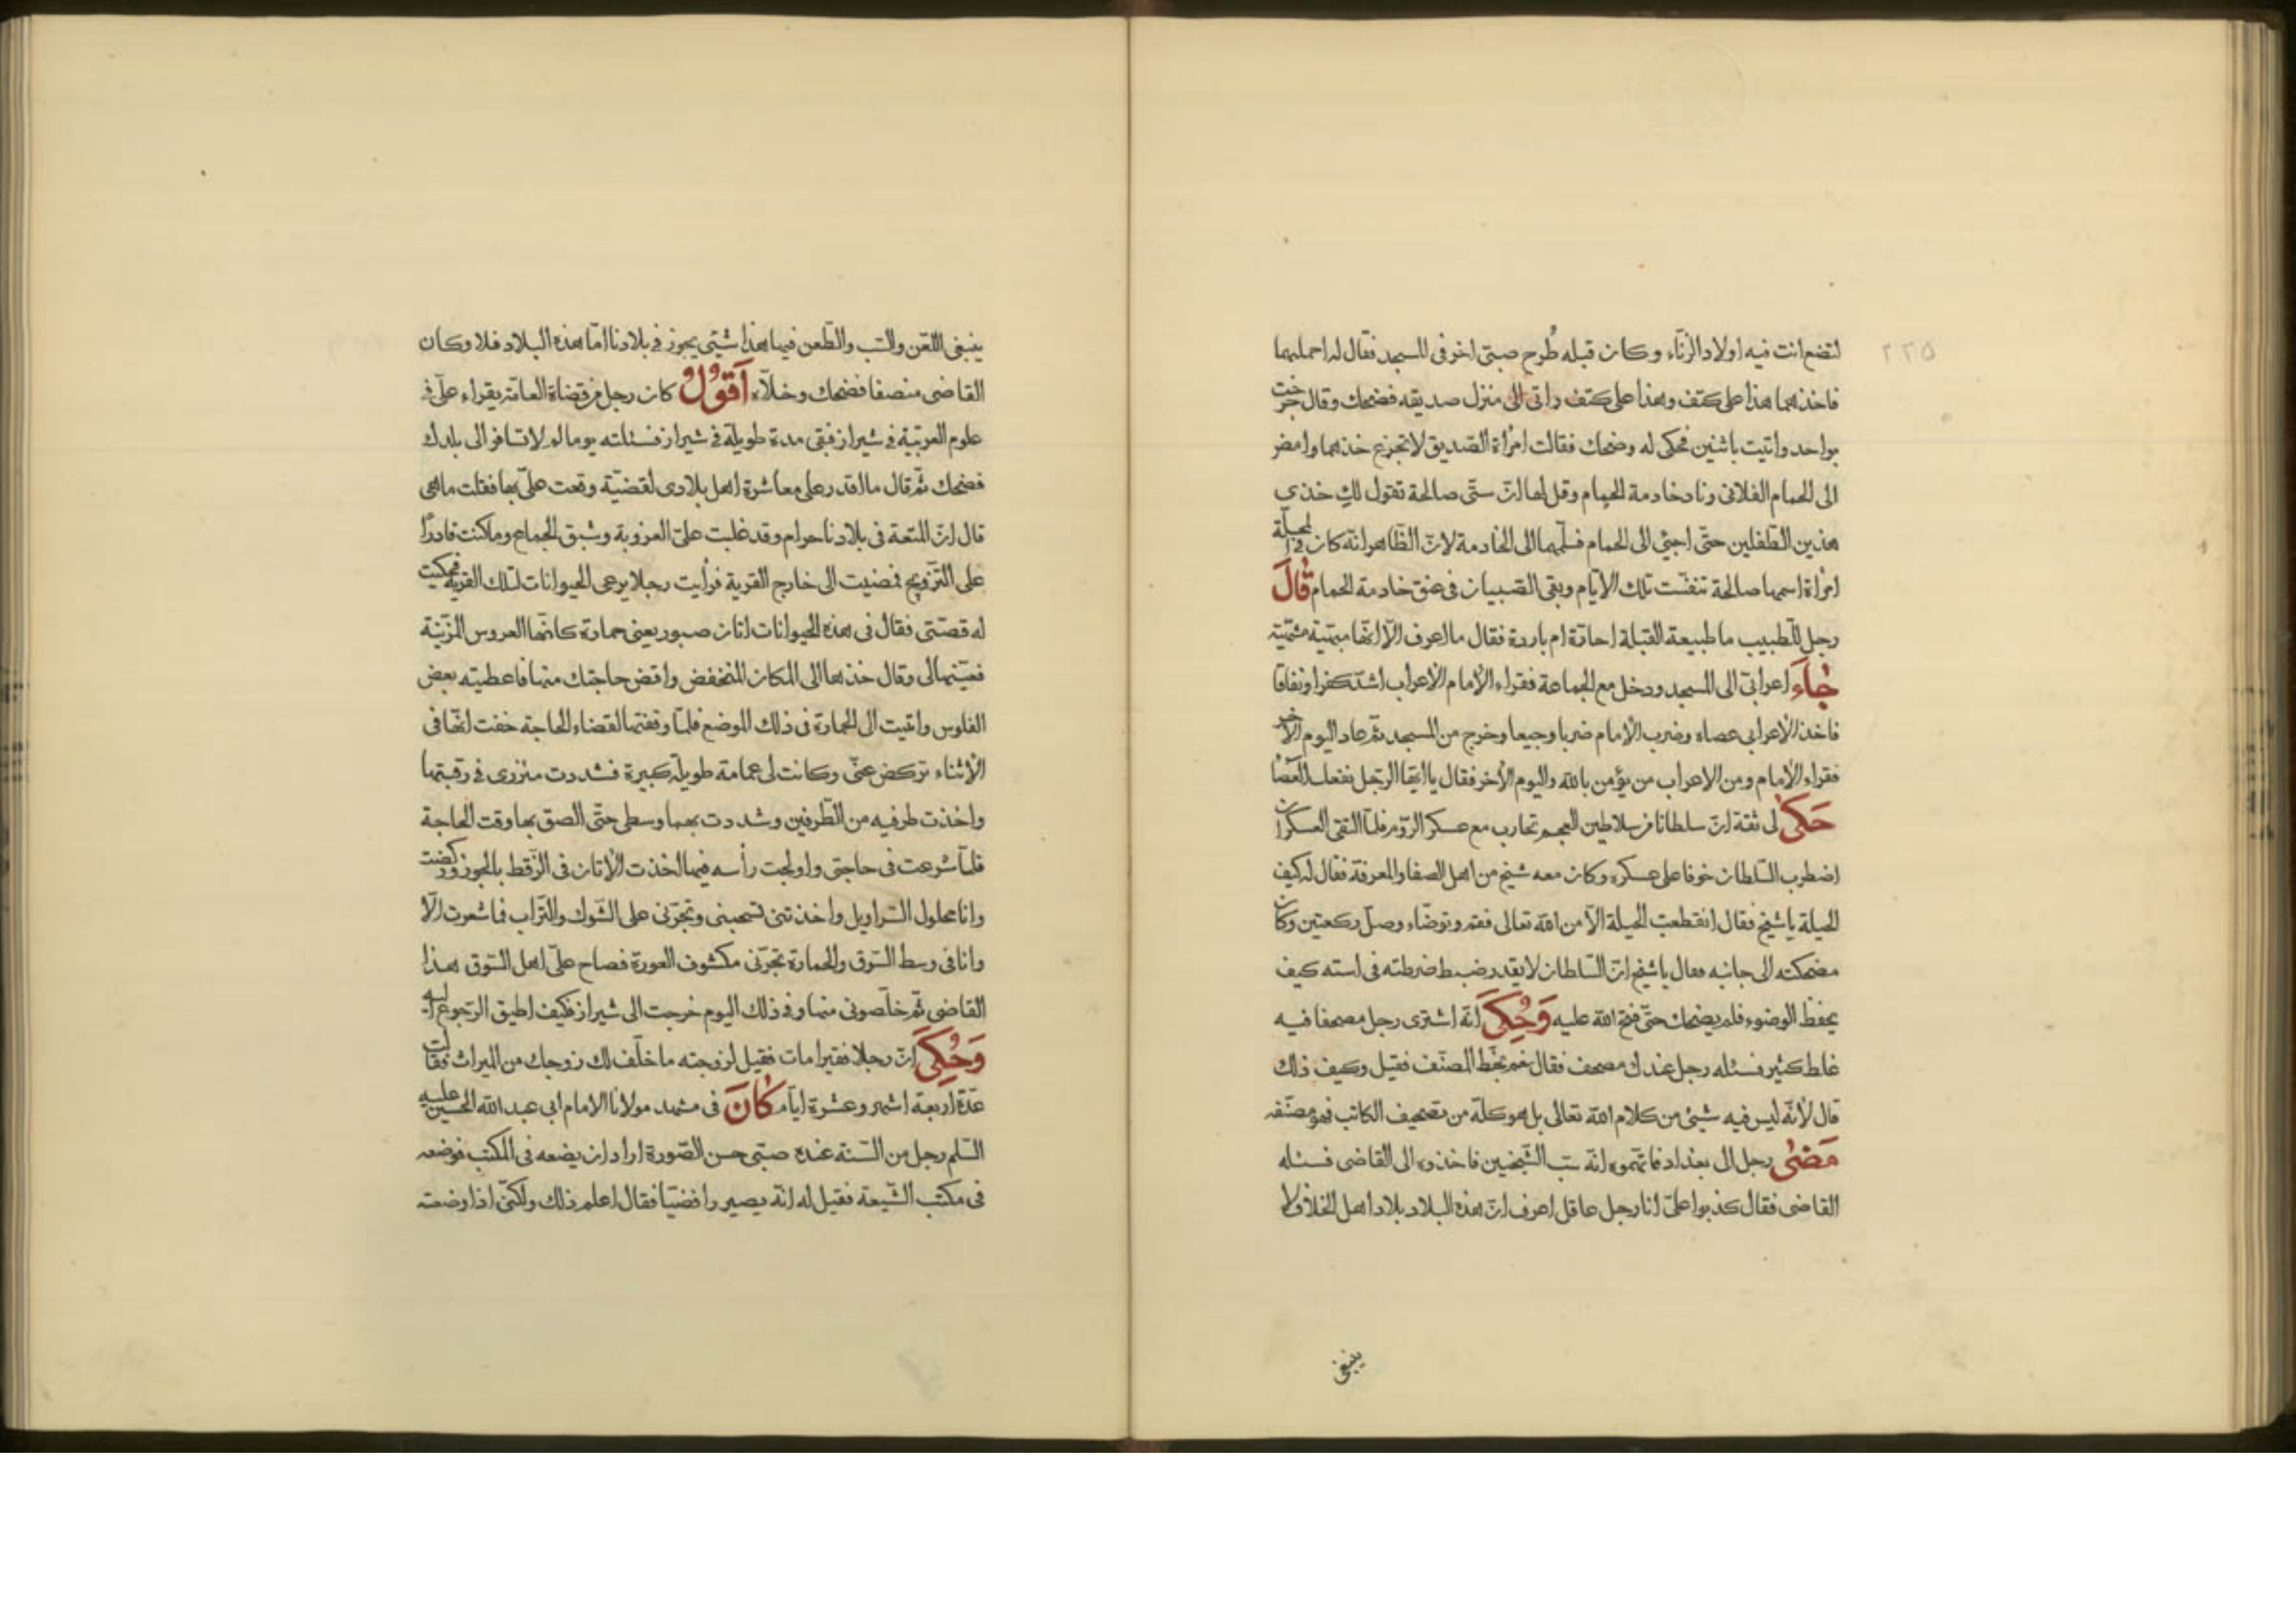 ٢٢٥
لتضع انت فيه اولاد الزناء وكان قبله طُرح صبىّ اخر فى المسجد فقال له احملهما
فاخذهما هذا على كتف وهذا على كتف واتى الى منزل صديقه فضحك وقال خرجت
بواحد واتيت باثنين فحكى له وضحك فقالت امرأة الصديق لا تجزع خذهما وامض
الى الحمام الفلانى وناد خادمة الحمام وقل لها انّ ستّى صالحة تقول لكِ خذى
هذين الطّفلين حتّى اجئ الى الحمام فسلّمهما الى الخادمة لانّ الظّاهر انّه كان فى المحلّة
امرأة اسمها صالحة تنفّست تلك الايّام وبقى الصّبيان فى عنق خادمة الحمام قالَ
رجل للطّبيب ما طبيعة القبلة احارّة ام باردة فقال ما اعرف الّا انّها مبهّية مشهّية
جٰاءَ اعرابىّ الى المسجد ودخل مع الجماعة فقراء الإمام الأعراب اشدّ كفرا ونفاقا
فاخذ الأعرابى عصاه وضرب الإمام ضربا وجيعا وخرج من المسجد ثمّ عاد اليوم الآخر
فقراء الإمام ومن الاعراب من يؤمن بالله واليوم الآخر فقال يا ايّها الرّجل نفعك العصٰا
حَكىٰ لى ثقة انّ سلطانا من سلاطين العجم تحارب مع عسكر الرّوم فلمّا التقى العسكران
اضطرب السّلطان خوفا على عسكره وكان معه شيخ من اهل الصفا والمعرفة فقال له كيف
الحيلة يا شيخ فقال انقطعت الحيلة الّا من الله تعالى فقم وتوضّاء وصلّ ركعتين وكان
مضحكته الى جانبه فقال يا شيخ انّ السّلطان لا يقدر ضبط ضرطته فى استه كيف
يحفظ الوضوء فلم يضحك حتّى فتح الله عليه وَحُكِىَ انّه اشترى رجل مصحفا فيه
غلط كثير فسئله رجل عندك مصحف فقال نعم بخطّ المصنّف فقيل وكيف ذلك
قال لأنّه ليس فيه شيئ من كلام الله تعالى بل هو كلّه من تصحيف الكاتب فهو مصنّفه
مَضىٰ رجل الى بغداد فاتّهموه انّه سبّ الشّيخين فاخذوه الى القاضى فسئله
القاضى فقال كذبوا علىّ انا رجل عاقل اعرف انّ هذه البلاد بلاد اهل الخلاف لا
ينبغى
ينبغى اللّعن والسّب والطّعن فيها هذا شيئ يجوز فى بلادنا امّا هذه البلاد فلا وكان
القاضى منصفا فضحك وخلّاه اَقوُلُ كان رجل من قضاة العامّة يقراء علىّ فى
علوم العربيّة فى شيراز فبقى مدة طويلة فى شيراز فسئلته يوما لم لا تسافر الى بلدك
فضحك ثمّ قال ما اقدر على معاشرة اهل بلادى لقضيّة وقعت علىّ بها فقلت ما هى
قال انّ المتعة فى بلادنا حرام وقد غلبت علىّ العزوبة وشبق الجماع وما كنت قادرًا
على التّزويج فمضيت الى خارج القرية فرأيت رجلا يرعى الحيوانات لتلك القرية فحكيت
له قصّتى فقال فى هذه الحيوانات اتان صبور يعنى حمارة كانّها العروس المزيّنة
فعيّنها لى وقال خذها الى المكان المنخفض واقض حاجتك منها فاعطيته بعض
الفلوس واتيت الى الحمارة فى ذلك الموضع فلمّا وقفتها لقضاء الحاجة خفت انّها فى
الأثناء تركض عنّى وكانت لى عمامة طويلة كبيرة فشددت مئزرى فى رقبتها
واخذت طرفيه من الطّرفين وشددت بهما وسطى حتّى الصق بها وقت الحاجة
فلمّا شرعت فى حاجتى واولجت رأسه فيها اخذت الأتان فى الزّقط بالجوز وركضت
وانا محلول السّراويل واخذتنى تسحبنى وتجرّنى على الشّوك والتّراب فما شعرت الّا
وانا فى وسط السّوق والحمارة تجرّنى مكشوف العورة فصاح علىّ اهل السّوق هذا
القاضى ثمّ خلّصونى منها وفى ذلك اليوم خرجت الى شيراز فكيف اطيق الرّجوع اليه
وَحُكِىَ انّ رجلا فقيرا مات فقيل لزوجته ما خلّف لك زوجك من الميراث فقالت
عدّة اربعة اشهر وعشرة ايّام كٰانَ فى مشهد مولانا الامام ابى عبد الله الحسين عليه
السّلم رجل من السّنة عنده صبّى حسن الصّورة اراد ان يضعه فى المكتب فوضعه
فى مكتب الشّيعة فقيل له انّه يصير رافضيّا فقال اعلم ذلك ولكنّى اذا وضعته